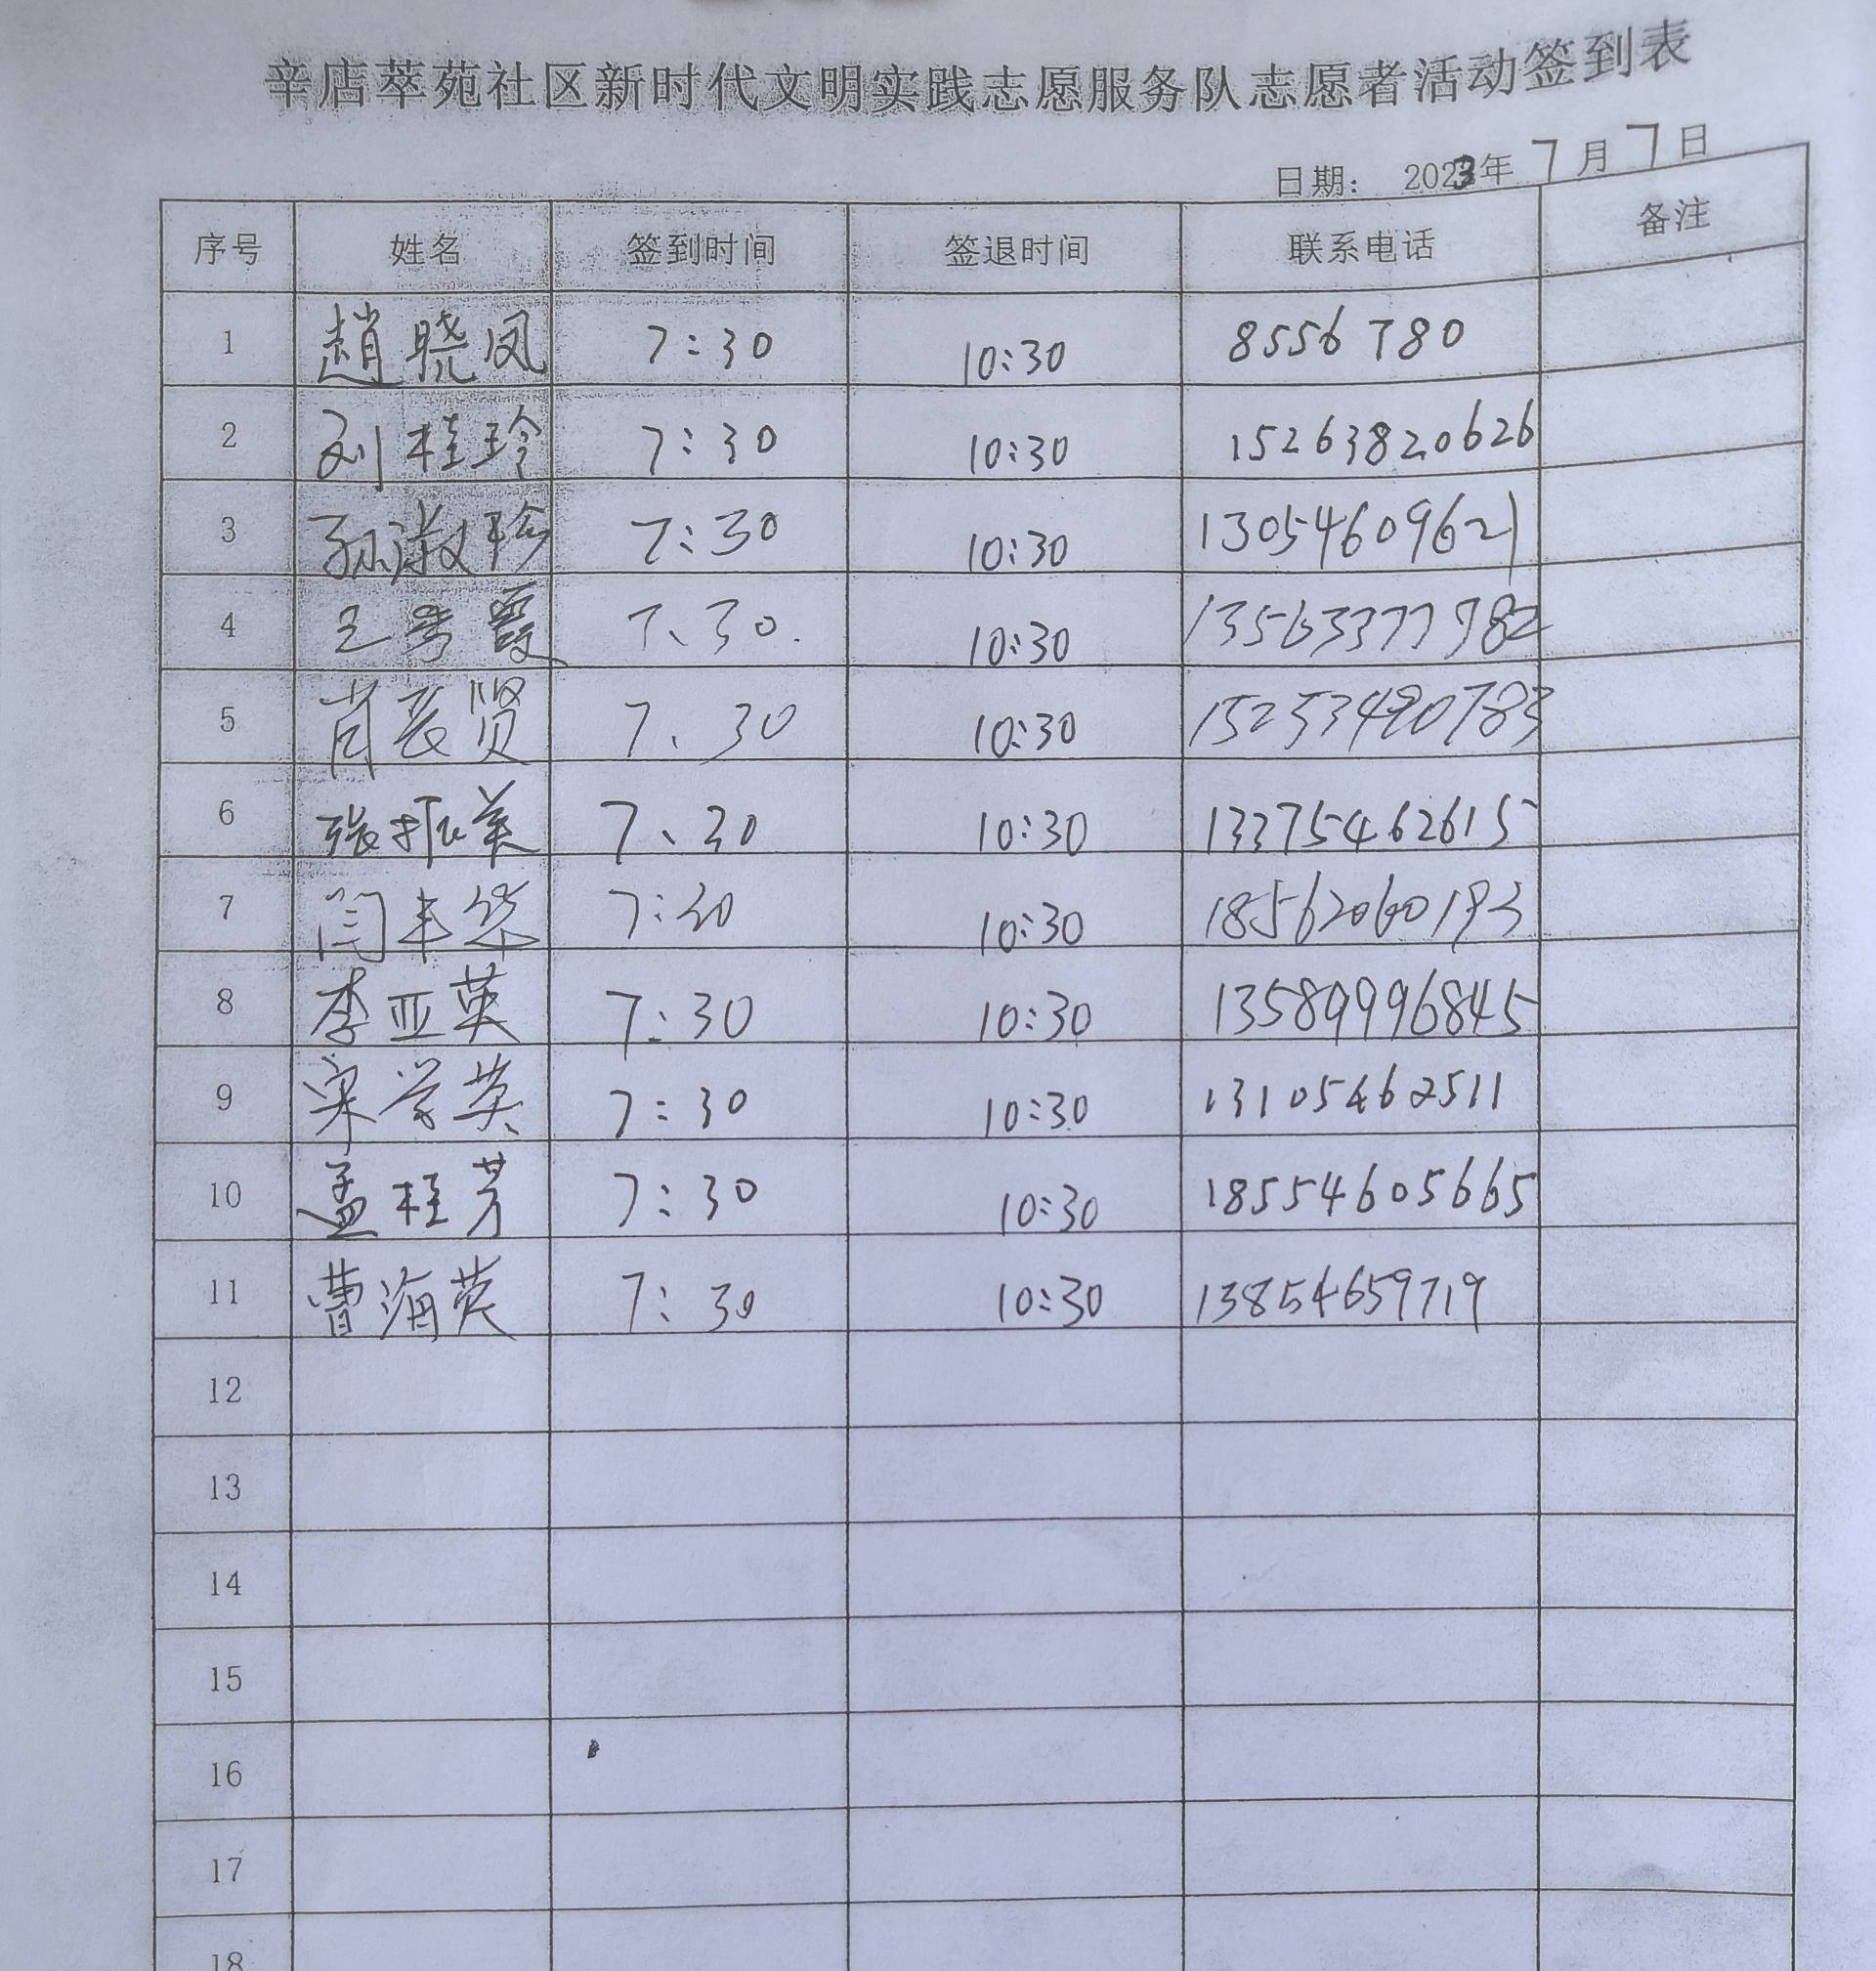 辛店萃苑社区新时代文明实践志愿服务队志愿者活动签到表
日期： 2023年 7月7日
序号 姓名 签到时间 签退时间 联系电话 备注
1 趙晓凤 7:30 10:30 8556780
2 刘桂玲 7:30 10:30 15263820626
3 孙淑珍 7:30 10:30 13054609621
4 王秀霞 7、30. 10:30 13563377782
5 肖 贤 7、30 10:30 15253490783
6 張振英 7、30 10:30 13375462615
7 闫丰华 7:30 10:30 18562060193
8 李亚英 7:30 10:30 13589996845
9 宋学英 7:30 10:30 13105462511
10 孟桂芳 7:30 10:30 18554605665
11 曹海英 7:30 10:30 13854659719
12
13
14
15
16
17
18